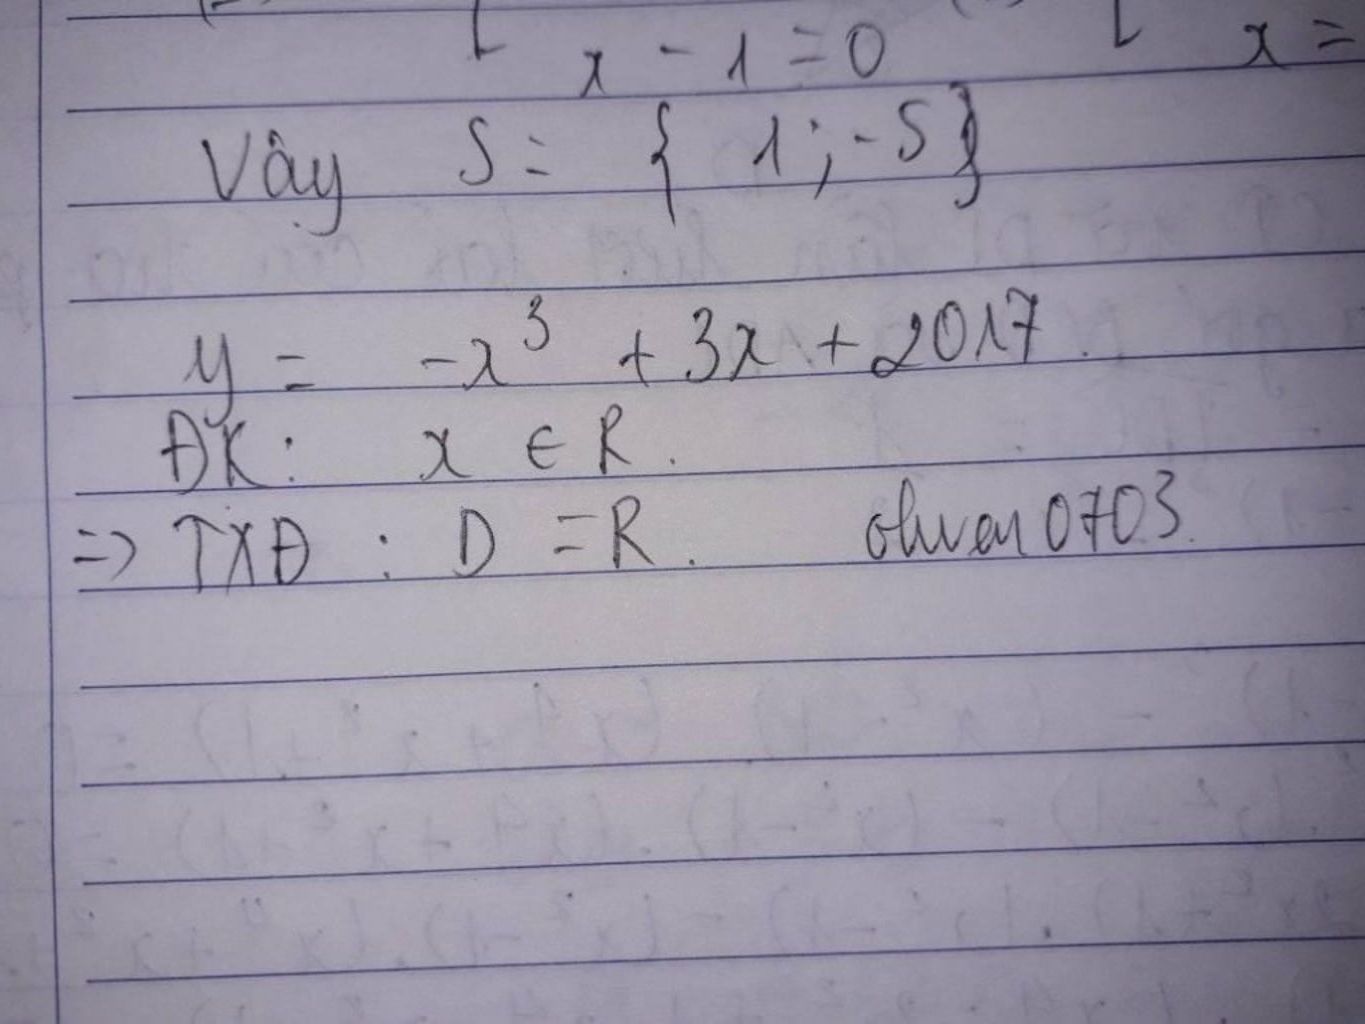 x - 1 = 0 x =
Vậy S = { 1 ; -5 }
y = -x³ + 3x + 2017.
ĐK : x ∈ R.
=> TXĐ : D = R. 0703.